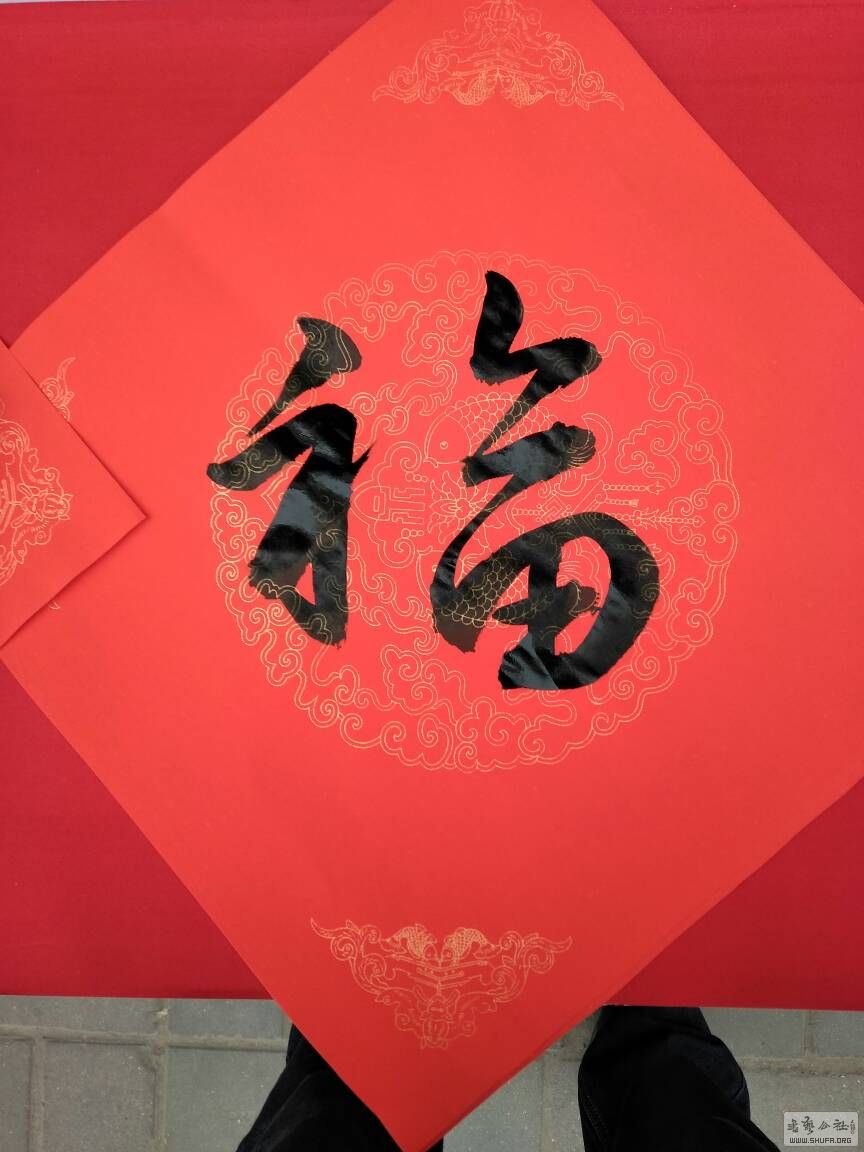 福
书艺公社
WWW.SHUFA.ORG